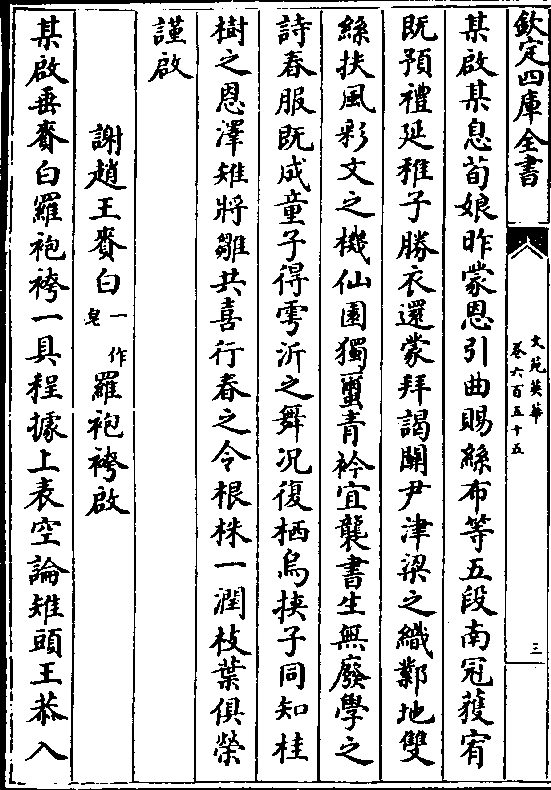 欽定四庫全書
文苑英華
卷六百五十五
三
某啟某息荀娘昨蒙恩引曲賜絲布等五段南冠獲宥
既預禮延稚子勝衣還蒙拜謁關尹津梁之織鄴地雙
絲扶風彩文之機仙園獨繭青衿宜襲書生無廢學之
詩春服既成童子得雩沂之舞况復栖烏挾子同知桂
樹之恩澤雉將雛共喜行春之令根株一潤枝葉俱榮
謹啟
謝趙王賚白一作皂羅袍袴啟
某啟垂賚白羅袍袴一具程據上表空論雉頭王恭入